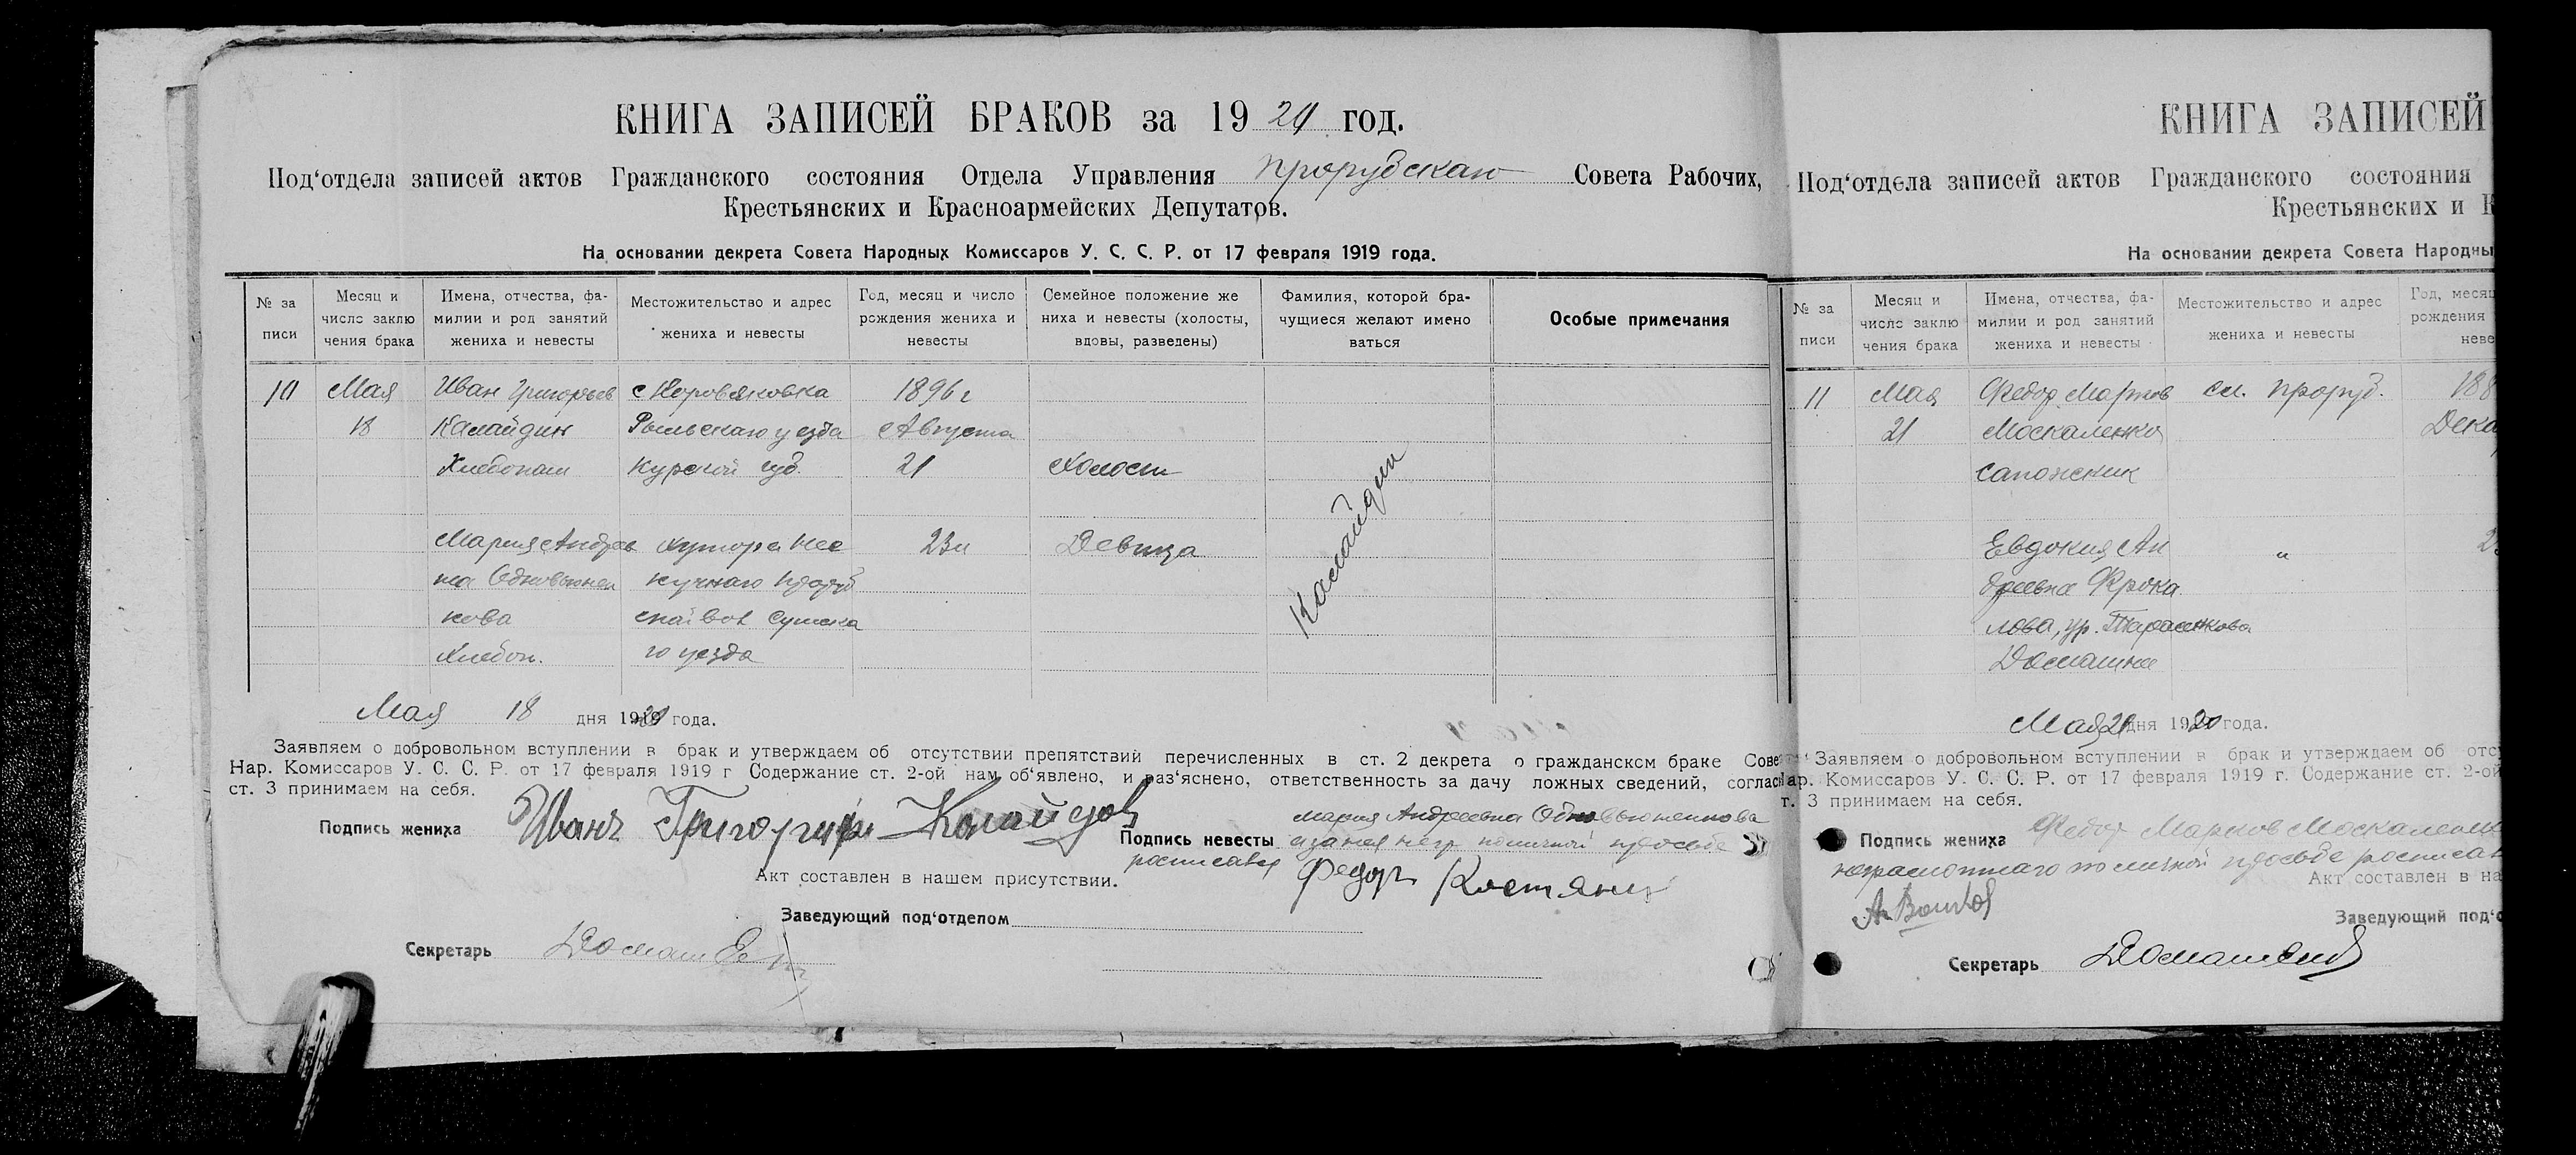 КНИГА ЗАПИСЕЙ БРАКОВ за 19 год.
Под‘отдела записей актов Гражданского состояния Отдела Управления Прорубскаго Совета Рабочих,
Крестьянских и Красноармейских Депутатов.
На основании декрета Совета Народных Комиссаров У. С. С. Р. от 17 февраля 1919 года.
№ за
писи
Месяц и
число заклю
чения брака
Имена, отчества, фа-
милии и род занятий
жениха и невесты
Местожительство и адрес
жениха и невесты
Год, месяц и число
рождения жениха и
невесты
Семейное положение же
ниха и невесты (холосты,
вдовы, разведены)
Фамилия, которой бра-
чущиеся желают имено
ваться
Особые примечания
10
Мая
18
Иван Григорьев
Калайдин
Хлебопаш
с Коровяковка
Рыльскаго уезда
Курской губ.
1896 г
Августа
21
Холост
Мария Андрее
на Одновьюнен
кова
Хлебоп.
хутора Нес
кучнаго Проруб
ской вол Сумска
го уезда
23 л
Девица
Калайдин
Мая 18 дня 1920 года.
Заявляем о добровольном вступлении в брак и утверждаем об отсутствии препятствий перечисленных в ст. 2 декрета о гражданском браке Сове
Нар. Комиссаров У. С. С. Р. от 17 февраля 1919 г Содержание ст. 2-ой нам об‘явлено, и раз‘яснено, ответственность за дачу ложных сведений, соглас
ст. 3 принимаем на себя.
Подпись жениха Иванъ Калайдов
Мария Андреевна Одновьюненкова
Подпись невесты а за нея негр по личной просьбе
росписался Федоръ
Акт составлен в нашем присутствии.
Заведующий под‘отделом
Секретарь
КНИГА ЗАПИСЕЙ
Под‘отдела записей актов Гражданского состояния
Крестьянских и К
На основании декрета Совета Народны
№ за
писи
Месяц и
число заклю
чения брака
Имена, отчества, фа-
милии и род занятий
жениха и невесты
Местожительство и адрес
жениха и невесты
Год, месяц
рождения
неве
11
Мая
21
Федор Марков
Москаленко
сапожник
сл. Проруб.
188
Дека
Евдокия Ан
дреевна Крока
лова, ур. Тарасенкова
Домашнее
"
2
Мая 21 дня 1920 года.
Заявляем о добровольном вступлении в брак и утверждаем об отсу
Нар. Комиссаров У. С. С. Р. от 17 февраля 1919 г. Содержание ст. 2-ой
т. 3 принимаем на себя.
Подпись жениха Федор Марков Москаленко
неграмотнаго по личной просьбе росписал
Акт составлен в на
Заведующий под‘о
Секретарь